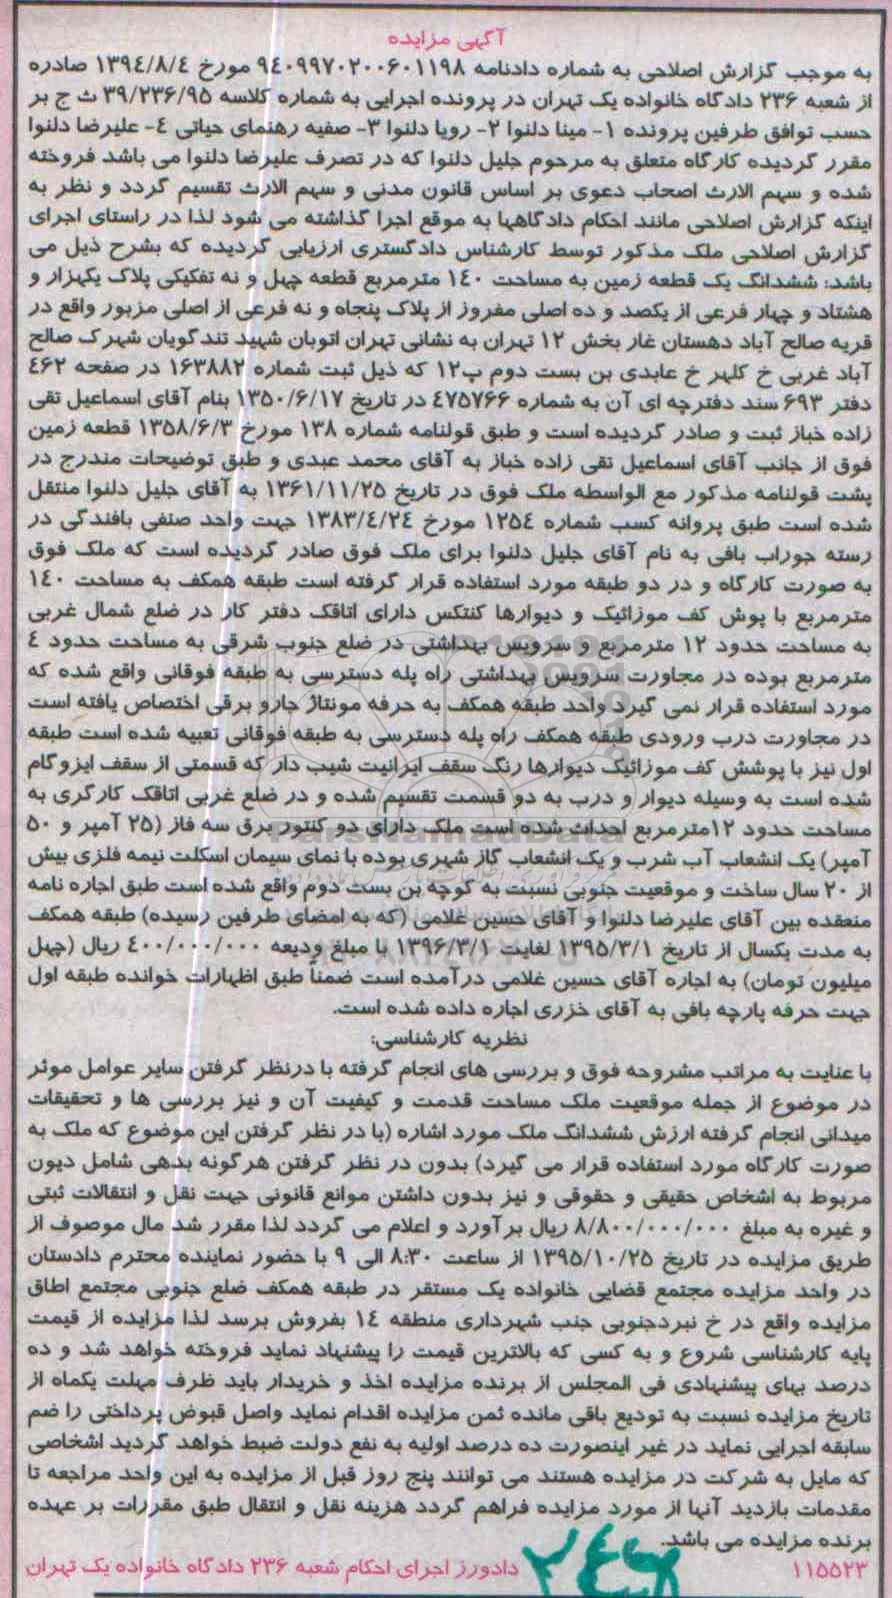 آگهی مزایده
به موجب گزارش اصلاحی به شماره دادنامه ۹٤۰۹۹۷۰۲۰۰۶۰۱۱۹۸ مورخ ۱۳۹٤/۸/٤ صادره
از شعبه ۲۳۶ دادگاه خانواده یک تهران در پرونده اجرایی به شماره کلاسه ۳۹/۲۳۶/۹۵ ث ج بر
حسب توافق طرفین پرونده ۱- مینا دلنوا ۲- رویا دلنوا ۳- صفیه رهنمای حیاتی ٤- علیرضا دلنوا
مقرر گردیده کارگاه متعلق به مرحوم جلیل دلنوا که در تصرف علیرضا دلنوا می باشد فروخته
شده و سهم الارث اصحاب دعوی بر اساس قانون مدنی و سهم الارث تقسیم گردد و نظر به
اینکه گزارش اصلاحی مانند احکام دادگاهها به موقع اجرا گذاشته می شود لذا در راستای اجرای
گزارش اصلاحی ملک مذکور توسط کارشناس دادگستری ارزیابی گردیده که بشرح ذیل می
باشد: ششدانگ یک قطعه زمین به مساحت ۱٤۰ مترمربع قطعه چهل و نه تفکیکی پلاک یکهزار و
هشتاد و چهار فرعی از یکصد و ده اصلی مفروز از پلاک پنجاه و نه فرعی از اصلی مزبور واقع در
قریه صالح آباد دهستان غار بخش ۱۲ تهران به نشانی تهران اتوبان شهید تندگویان شهرک صالح
آباد غربی خ کلهر خ عابدی بن بست دوم پ۱۲ که ذیل ثبت شماره ۱۶۳۸۸۲ در صفحه ٤۶۲
دفتر ۶۹۳ سند دفترچه ای آن به شماره ٤۷۵۷۶۶ در تاریخ ۱۳۵۰/۶/۱۷ بنام آقای اسماعیل تقی
زاده خباز ثبت و صادر گردیده است و طبق قولنامه شماره ۱۳۸ مورخ ۱۳۵۸/۶/۳ قطعه زمین
فوق از جانب آقای اسماعیل تقی زاده خباز به آقای محمد عبدی و طبق توضیحات مندرج در
پشت قولنامه مذکور مع الواسطه ملک فوق در تاریخ ۱۳۶۱/۱۱/۲۵ به آقای جلیل دلنوا منتقل
شده است طبق پروانه کسب شماره ۱۲۵٤ مورخ ۱۳۸۳/٤/۲٤ جهت واحد صنفی بافندگی در
رسته جوراب بافی به نام آقای جلیل دلنوا برای ملک فوق صادر گردیده است که ملک فوق
به صورت کارگاه و در دو طبقه مورد استفاده قرار گرفته است طبقه همکف به مساحت ۱٤۰
مترمربع با پوش کف موزائیک و دیوارها کنتکس دارای اتاقک دفتر کار در ضلع شمال غربی
به مساحت حدود ۱۲ مترمربع و سرویس بهداشتی در ضلع جنوب شرقی به مساحت حدود ٤
مترمربع بوده در مجاورت سرویس بهداشتی راه پله دسترسی به طبقه فوقانی واقع شده که
مورد استفاده قرار نمی گیرد واحد طبقه همکف به حرفه مونتاژ جارو برقی اختصاص یافته است
در مجاورت درب ورودی طبقه همکف راه پله دسترسی به طبقه فوقانی تعبیه شده است طبقه
اول نیز با پوشش کف موزائیک دیوارها رنگ سقف ایرانیت شیب دار که قسمتی از سقف ایزوگام
شده است به وسیله دیوار و درب به دو قسمت تقسیم شده و در ضلع غربی اتاقک کارگری به
مساحت حدود ۱۲مترمربع احداث شده است ملک دارای دو کنتور برق سه فاز (۲۵ آمپر و ۵۰
آمپر) یک انشعاب آب شرب و یک انشعاب گاز شهری بوده با نمای سیمان اسکلت نیمه فلزی بیش
از ۲۰ سال ساخت و موقعیت جنوبی نسبت به کوچه بن بست دوم واقع شده است طبق اجاره نامه
منعقده بین آقای علیرضا دلنوا و آقای حسین غلامی (که به امضای طرفین رسیده) طبقه همکف
به مدت یکسال از تاریخ ۱۳۹۵/۳/۱ لغایت ۱۳۹۶/۳/۱ با مبلغ ودیعه ٤۰۰/۰۰۰/۰۰۰ ریال (چهل
میلیون تومان) به اجاره آقای حسین غلامی درآمده است ضمناً طبق اظهارات خوانده طبقه اول
جهت حرفه پارچه بافی به آقای خزری اجاره داده شده است.
نظریه کارشناسی:
با عنایت به مراتب مشروحه فوق و بررسی های انجام گرفته با درنظر گرفتن سایر عوامل موثر
در موضوع از جمله موقعیت ملک مساحت قدمت و کیفیت آن و نیز بررسی ها و تحقیقات
میدانی انجام گرفته ارزش ششدانگ ملک مورد اشاره (با در نظر گرفتن این موضوع که ملک به
صورت کارگاه مورد استفاده قرار می گیرد) بدون در نظر گرفتن هرگونه بدهی شامل دیون
مربوط به اشخاص حقیقی و حقوقی و نیز بدون داشتن موانع قانونی جهت نقل و انتقالات ثبتی
و غیره به مبلغ ۸/۸۰۰/۰۰۰/۰۰۰ ریال برآورد و اعلام می گردد لذا مقرر شد مال موصوف از
طریق مزایده در تاریخ ۱۳۹۵/۱۰/۲۵ از ساعت ۸:۳۰ الی ۹ با حضور نماینده محترم دادستان
در واحد مزایده مجتمع قضایی خانواده یک مستقر در طبقه همکف ضلع جنوبی مجتمع اطاق
مزایده واقع در خ نبردجنوبی جنب شهرداری منطقه ۱٤ بفروش برسد لذا مزایده از قیمت
پایه کارشناسی شروع و به کسی که بالاترین قیمت را پیشنهاد نماید فروخته خواهد شد و ده
درصد بهای پیشنهادی فی المجلس از برنده مزایده اخذ و خریدار باید ظرف مهلت یکماه از
تاریخ مزایده نسبت به تودیع باقی مانده ثمن مزایده اقدام نماید واصل قبوض پرداختی را ضم
سابقه اجرایی نماید در غیر اینصورت ده درصد اولیه به نفع دولت ضبط خواهد گردید اشخاصی
که مایل به شرکت در مزایده هستند می توانند پنج روز قبل از مزایده به این واحد مراجعه تا
مقدمات بازدید آنها از مورد مزایده فراهم گردد هزینه نقل و انتقال طبق مقررات بر عهده
برنده مزایده می باشد.
۱۱۵۵۲۳ دادورز اجرای احکام شعبه ۲۳۶ دادگاه خانواده یک تهران
ParsNamadData